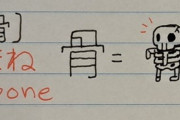 ほね
bone
骨 =